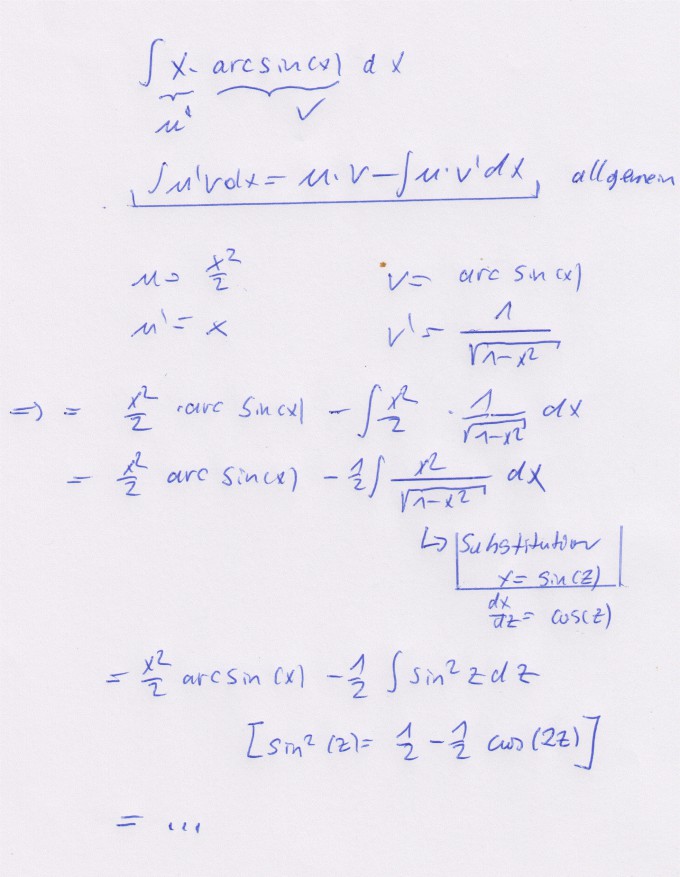 ∫ x · arcsin(x) dx
u' v
∫u'vdx = u·v - ∫u·v'dx, allgemein
u = x²/2 v = arc sin(x)
u' = x v' = 1/√(1-x²)
=> = x²/2 · arc sin(x) - ∫ x²/2 · 1/√(1-x²) dx
= x²/2 arc sin(x) - 1/2 ∫ x²/√(1-x²) dx
↳ Substitution
x = sin(z)
dx/dz = cos(z)
= x²/2 arcsin(x) - 1/2 ∫ sin² z dz
[sin²(z) = 1/2 - 1/2 cos(2z)]
= ...